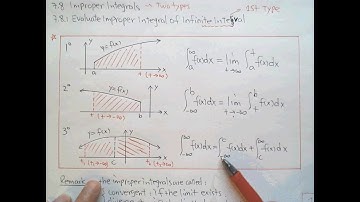 7.8 Improper Integrals → Two types
7.8: Evaluate Improper Integral of Infinite Interval → 1ST Type
1° y y=f(x) a t x (t→∞) ∫_a^∞ f(x)dx = lim_{t→∞} ∫_a^t f(x)dx
2° y y=f(x) t b x (t→-∞) ∫_{-∞}^b f(x)dx = lim ∫_t^b f(x)dx
3° y=f(x) y t₁ c t₂ x (t₁→-∞) (t₂→∞) ∫_{-∞}^∞ f(x)dx = ∫_{-∞}^c f(x)dx + ∫_c^∞ f(x)dx
Remark the improper integrals are called:
convergent: If the limit exists